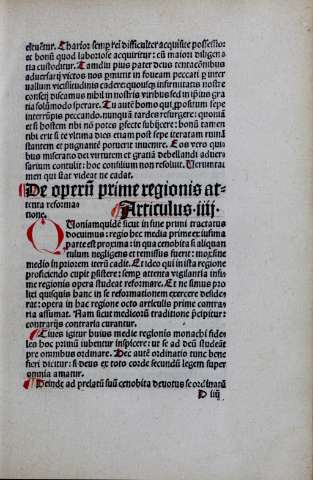 eſtuētur. Charior semꝑ rei difficulter acquisite possessio:
et bonū quod laboriose acquiritur: cū maiori diligen⸗
tia custoditur. Tamdiu pius pater deus tentacōnibus
aduersarij victos nos ꝑmittit in foueam peccati ꝑ inter
uallum vicissitudinis cadere quousqꝫ infirmitatis nostre
conscij discamus nihil in nostris viribus sed in ipsius gra
tia solūmodo sperare. Tu autē homo qui ꝓpositum sepe
interrūpis peccando. nunquā tardes resurgere: quoniā
et si hostem tibi nō potes ꝓfecte subijcere: bonū tamen
tibi erit si te vltima dies etiam post sepe iteratam ruinā
instantem et pugnantē poterit inuenire. Eos vero qui⸗
bus miserato deus virtutem et gratiā debellandi aduer⸗
sarium contulit: hoc consilium non resoluit. Veruntai
men qui stat videat ne cadat.
De operū prime regionis at⸗
tenta reforma⸗
tione. Articulus .iiij.
QUoniamquidē sicut in fine primi tractatus
docuimus: regio hec media prime ex infima
parte est proxima: in qua cenobita si aliquan
tulum negligens et remissus fuerit: mox sine
medio in priorem iterū cadit. Et ideo qui in ista regione
proficiendo cupit ꝑsistere: semꝑ attenta vigilantia infi⸗
me regionis opera studeat reformare. Et ne simus pro⸗
lixi quisquis hanc in se reformationem exercere deside⸗
rat: opera in hac regione octo articulis prime contra⸗
ria assumat. Nam sicut medicorū traditione ꝑcipitur:
contrarijs contraria curantur.
Ciues igitur huius medie regionis monachi fide⸗
les hoc primū iubentur inspicere: ut se ad deū studeāt
pre omnibus ordinare. Dec autē ordinatio tunc bene
fieri dicitur: si deus ex toto corde secundū legem super
omnia amatur.
Deinde ad prelatū suū cenobita deuotus se ordinatū
D iiij